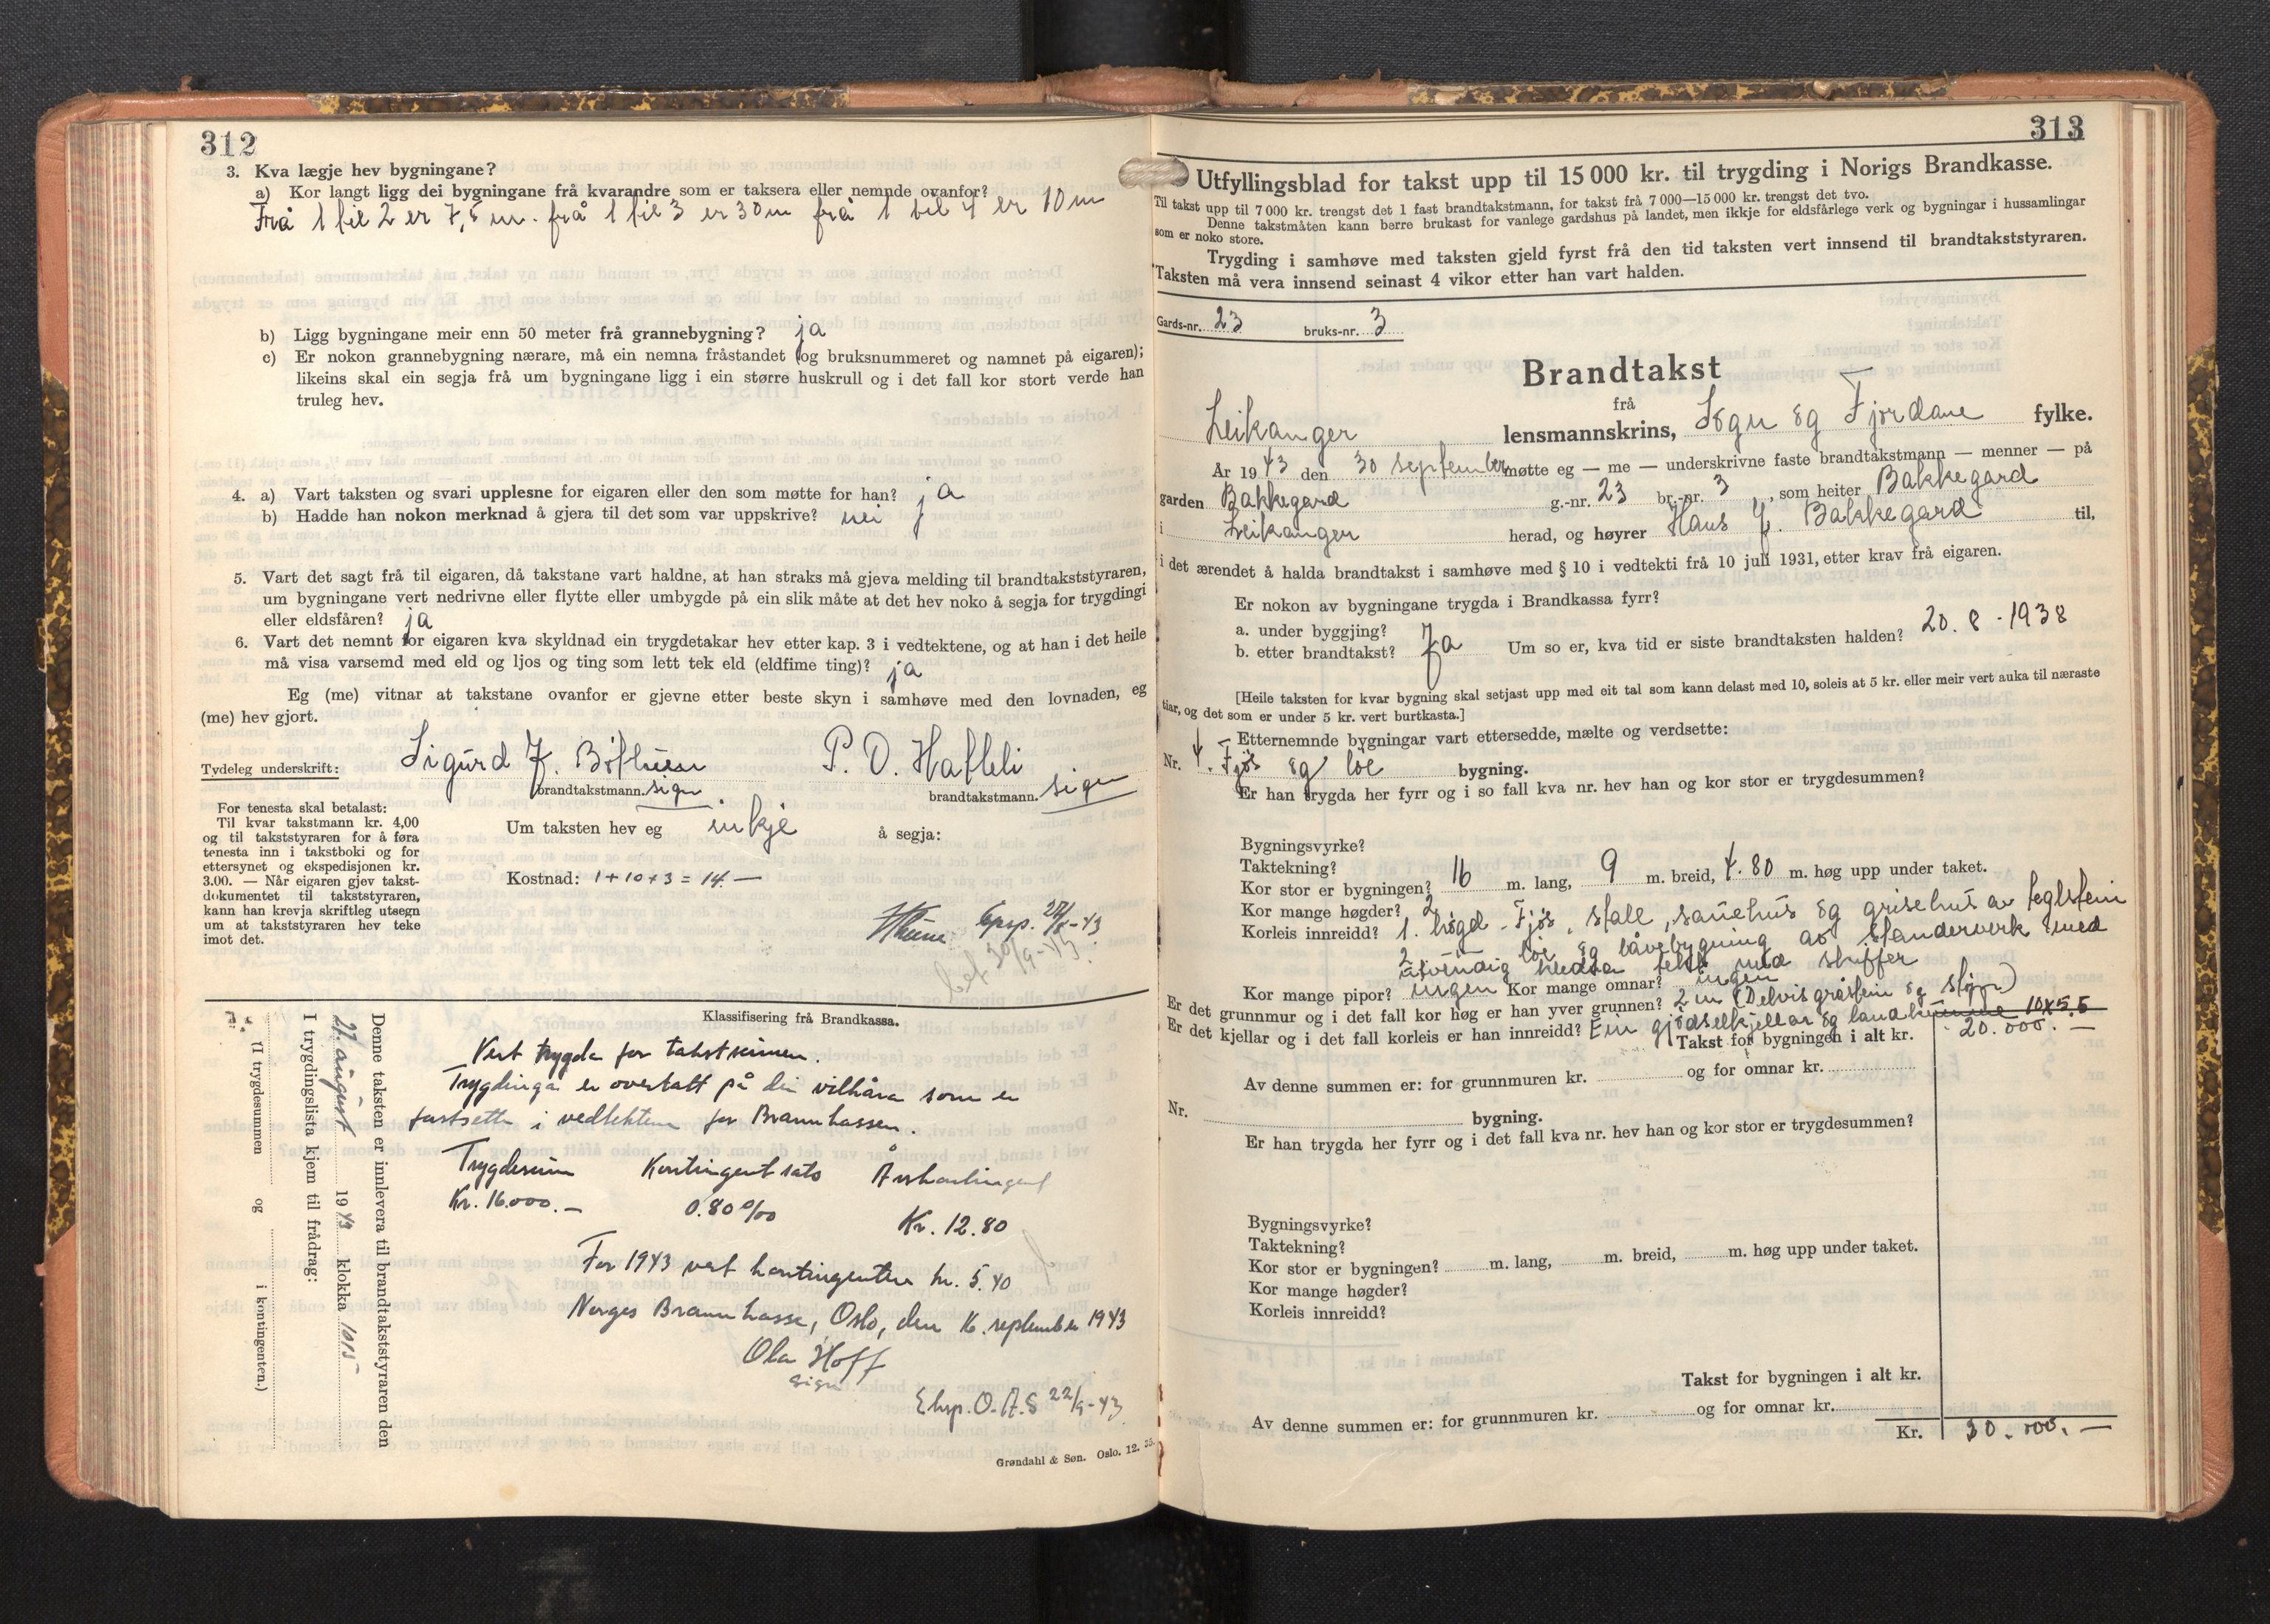 312
3. Kva lægje hev bygningane?
a) Kor langt ligg dei bygningane frå kvarandre som er taksera eller nemnde ovanfor?
Frå 1 til 2 er 7,5 m. frå 1 til 3 er 30 m frå 1 til 4 er 10 m
b) Ligg bygningane meir enn 50 meter frå grannebygning? ja
c) Er nokon grannebygning nærare, må ein nemna fråstandet (og bruksnummeret og namnet på eigaren);
likeins skal ein segja frå um bygningane ligg i ein større huskrull og i det fall kor stort verde han
truleg hev.
4. a) Vart taksten og svari upplesne for eigaren eller den som møtte for han? ja
b) Hadde han nokon merknad å gjera til det som var uppskrive? nei
5. Vart det sagt frå til eigaren, då takstane vart haldne, at han straks må gjeva melding til brandtakststyraren,
um bygningane vert nedrivne eller flytte eller umbygde på ein slik måte at det hev noko å segja for trygdingi
eller eldsfåren? ja
6. Vart det nemnt for eigaren kva skyldnad ein trygdetakar hev etter kap. 3 i vedtektene, og at han i det heile
må visa varsemd med eld og ljos og ting som lett tek eld (eldfime ting)? ja
Eg (me) vitnar at takstane ovanfor er gjevne etter beste skyn i samhøve med den lovnaden, eg
(me) hev gjort.
Tydeleg underskrift: Sigurd J. P. O.
brandtakstmann. sign brandtakstmann. sign
For tenesta skal betalast:
Til kvar takstmann kr. 4,00
og til takststyraren for å føra
tenesta inn i takstboki og for
ettersynet og ekspedisjonen kr.
3.00. — Når eigaren gjev takst-
dokumentet til takststyraren,
kann han krevja skriftleg utsegn
um at takststyraren hev teke
imot det.
Um taksten hev eg inkje å segja:
Kostnad: 1 + 10 + 3 = 14.—
Exsp. 27/8-43
bet 30/9-43
Klassifisering frå Brandkassa.
Denne taksten er innlevera til brandtakststyraren den
27. august 1943 klokka 1015
I trygdingslista kjem til frådrag:
(I trygdesummen og i kontingenten.)
Vert trygda for takstsumen.
Trygdinga er overtatt på dei vilkåra som er
fastsette i vedtektene for Brannkassen.
Trygdesum Kontingent sats Årskontingent
Kr. 16.000.— 0.80 ‰ Kr. 12.80
For 1943 vert kontingenten kr. 5.40
Norges Brannkasse, Oslo, den 16. september 1943
Ola Hoff
sign
Eksp. O.A.S 22/9-43
Grøndahl & Søn. Oslo. 12. 35.
313
Utfyllingsblad for takst upp til 15 000 kr. til trygding i Norigs Brandkasse.
Til takst upp til 7 000 kr. trengst det 1 fast brandtakstmann, for takst frå 7 000—15 000 kr. trengst det tvo.
Denne takstmåten kann berre brukast for vanlege gardshus på landet, men ikkje for eldsfårlege verk og bygningar i hussamlingar
som er noko store.
Trygding i samhøve med taksten gjeld fyrst frå den tid taksten vert innsend til brandtakststyraren.
Taksten må vera innsend seinast 4 vikor etter han vart halden.
Gards-nr. 23 bruks-nr. 3
Brandtakst
frå
Leikanger lensmannskrins, Sogn og Fjordane fylke.
År 1943 den 30 september møtte eg — me — underskrivne faste brandtakstmann — menner — på
garden Bakkegard g.-nr. 23 br.-nr. 3, som heiter Bakkegard
i Leikanger herad, og høyrer Hans J. Bakkegard til,
i det ærendet å halda brandtakst i samhøve med § 10 i vedtekti frå 10 juli 1931, etter krav frå eigaren.
Er nokon av bygningane trygda i Brandkassa fyrr?
a. under byggjing?
b. etter brandtakst? Ja Um so er, kva tid er siste brandtaksten halden? 20.8-1938
[Heile taksten for kvar bygning skal setjast upp med eit tal som kann delast med 10, soleis at 5 kr. eller meir vert auka til næraste
tiar, og det som er under 5 kr. vert burtkasta.]
Etternemnde bygningar vart ettersedde, mælte og verdsette:
Nr. 4. Fjøs og løe bygning.
Er han trygda her fyrr og i so fall kva nr. hev han og kor stor er trygdesummen?
Bygningsvyrke?
Taktekning?
Kor stor er bygningen? 16 m. lang, 9 m. breid, 4.80 m. høg upp under taket.
Kor mange høgder? 2
Korleis innreidd? 1. høgd - Fjøs, stall, sauehus og grisehus av teglstein
2. løe og låvebygning av standerverk med
utvendig kledsn tekt med skiffer
Kor mange pipor? ingen Kor mange omnar? ingen
Er det grunnmur og i det fall kor høg er han yver grunnen? 2 m (Delvis gråstein og støpn)
Er det kjellar og i det fall korleis er han innreidd? Ein gjødselkjellar og landkummne 10x5,5
Takst for bygningen i alt kr. 20.000.—
Av denne summen er: for grunnmuren kr. og for omnar kr.
Nr. bygning.
Er han trygda her fyrr og i det fall kva nr. hev han og kor stor er trygdesummen?
Bygningsvyrke?
Taktekning?
Kor stor er bygningen? m. lang, m. breid, m. høg upp under taket.
Kor mange høgder?
Korleis innreidd?
Takst for bygningen i alt kr.
Av denne summen er: for grunnmuren kr. og for omnar kr.
Kr. 30.000.—